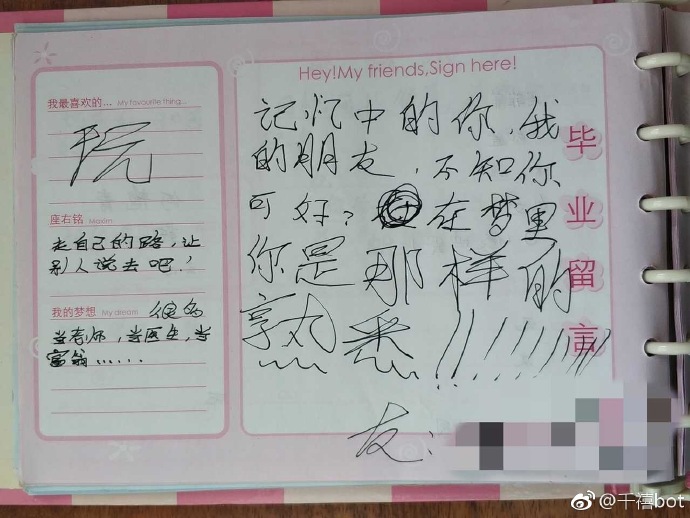 Hey!My friends,Sign here!
我最喜欢的... My favourite thing...
玩
座右铭 Maxim
走自己的路，让
别人说去吧！
我的梦想 My dream 很多
当老师，当医生，当
富翁……
记忆中的你，我
的朋友，不知你
可好？在梦里
你是那样的
熟悉!!!!!!!!!
友：
毕业留言
@千禧bot